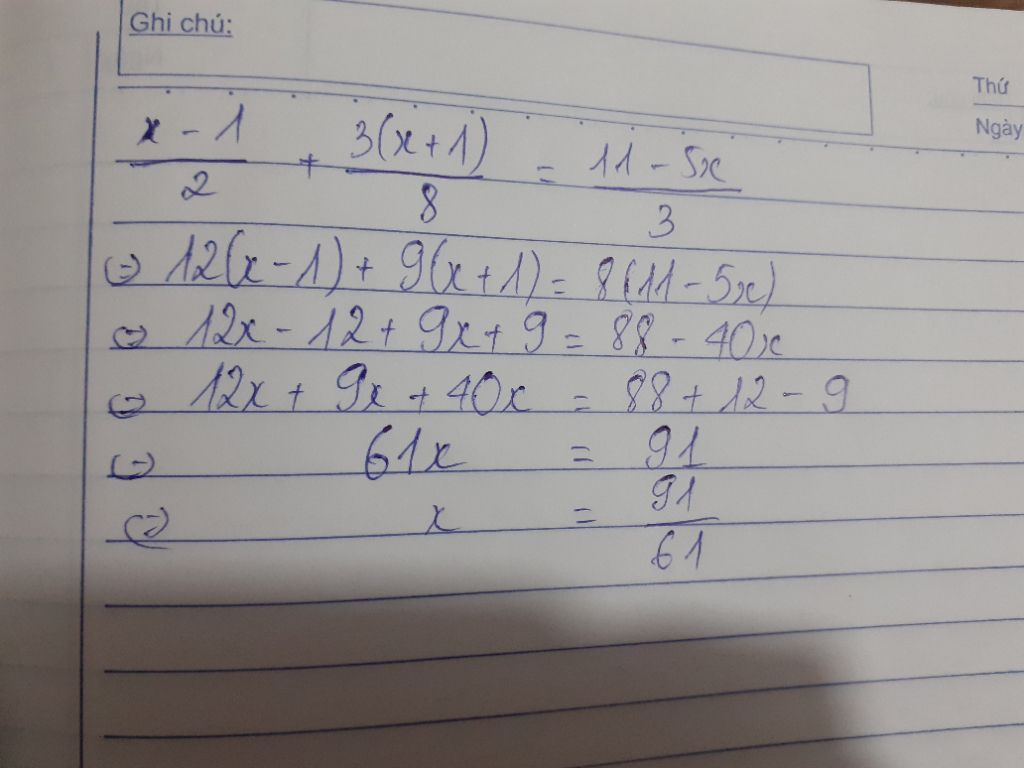 Ghi chú:
Thứ
Ngày
x - 1 / 2 + 3(x+1) / 8 = 11 - 5x / 3
(=) 12(x-1) + 9(x+1) = 8(11-5x)
(=) 12x - 12 + 9x + 9 = 88 - 40x
(=) 12x + 9x + 40x = 88 + 12 - 9
(=) 61x = 91
(=) x = 91 / 61